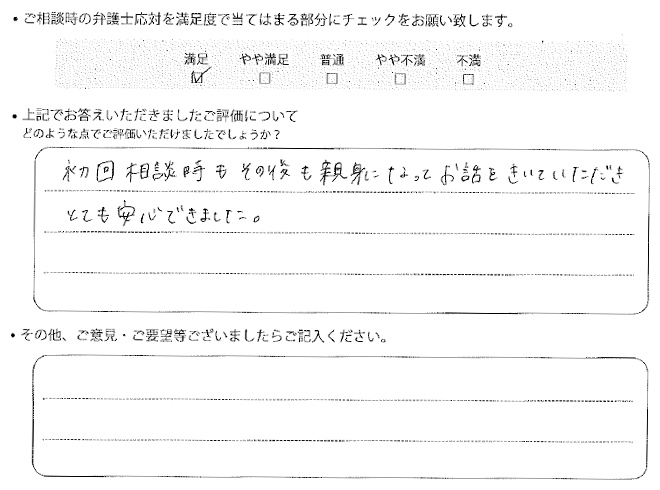 • ご相談時の弁護士応対を満足度で当てはまる部分にチェックをお願い致します。
満足 やや満足 普通 やや不満 不満
☑ □ □ □ □
• 上記でお答えいただきましたご評価について
どのような点でご評価いただけましたでしょうか？
初回相談時もその後も親身になってお話をきいていただき
とても安心できました。
• その他、ご意見・ご要望等ございましたらご記入ください。